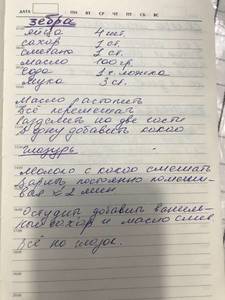 ДАТА ПН ВТ СР ЧТ ПТ СБ ВС
зебра
яйца 4 шт.
сахар 1 ст.
сметана 1 ст.
масло 100 гр.
сода 1 ч. ложка
мука 3 ст.
Масло растопить
Всё перемешать
Разделить на две части
В одну добавить какао
глазурь
Молоко с какао смешать
Варить постоянно помеши-
вая 2 мин
Остудить добавить ваниль-
ный сахар и масло слив.
Всё по глазок.